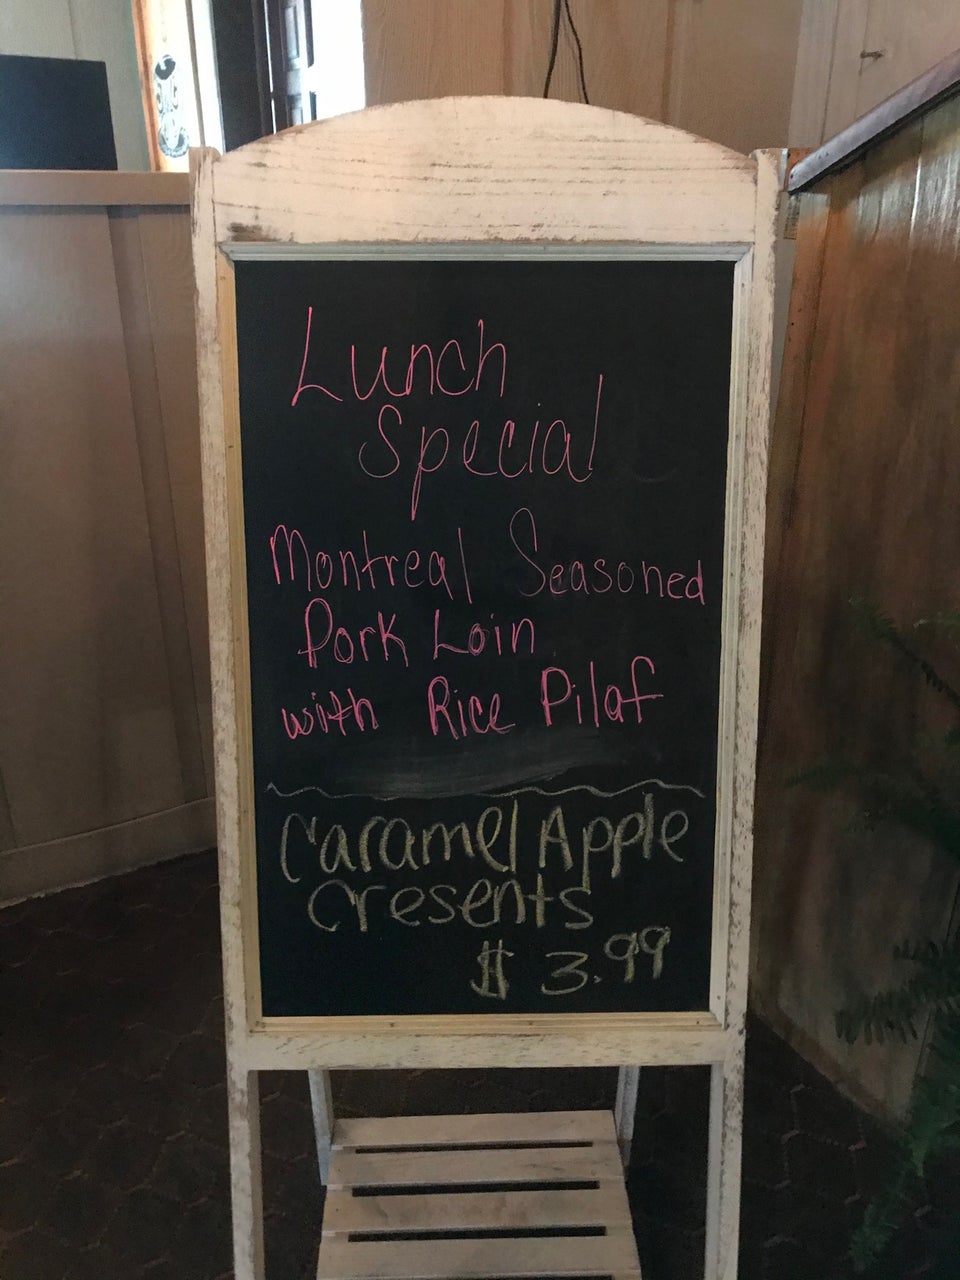 Lunch
Special
Montreal Seasoned
Pork Loin
with Rice Pilaf
Caramel Apple
Cresents
$ 3.99